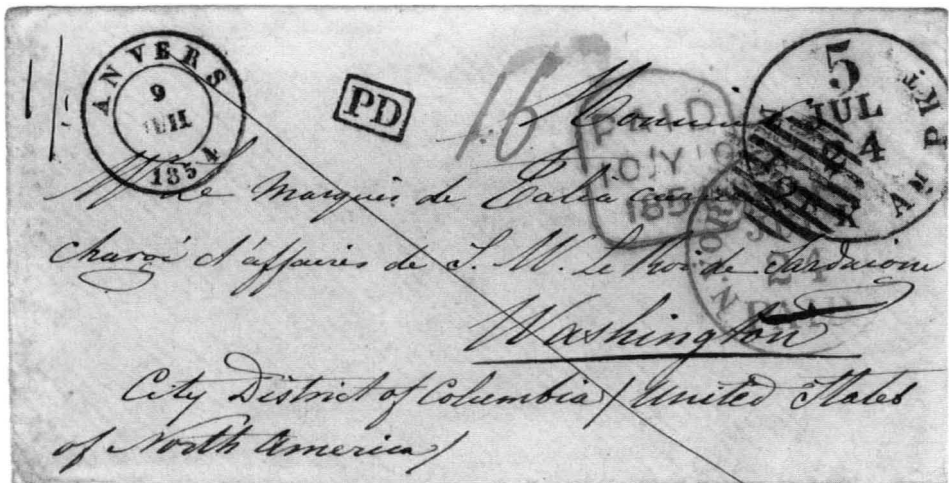 ANVERS
9
1854
PD
16
PAID
10 JY
185
5
JUL
24
AM PKT
24
PAID
Monsieur
Mr le Marquis de
chargé d'affaires de S. M. Le Roi de Sardaigne
Washington
City District of Columbia / United States
of North America /